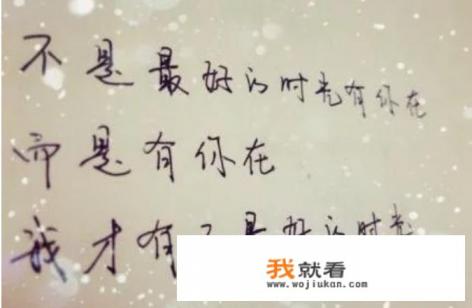 不是最好的时光有你在
而是有你在
我才有了最好的时光
我就看
www.wojiukan.com